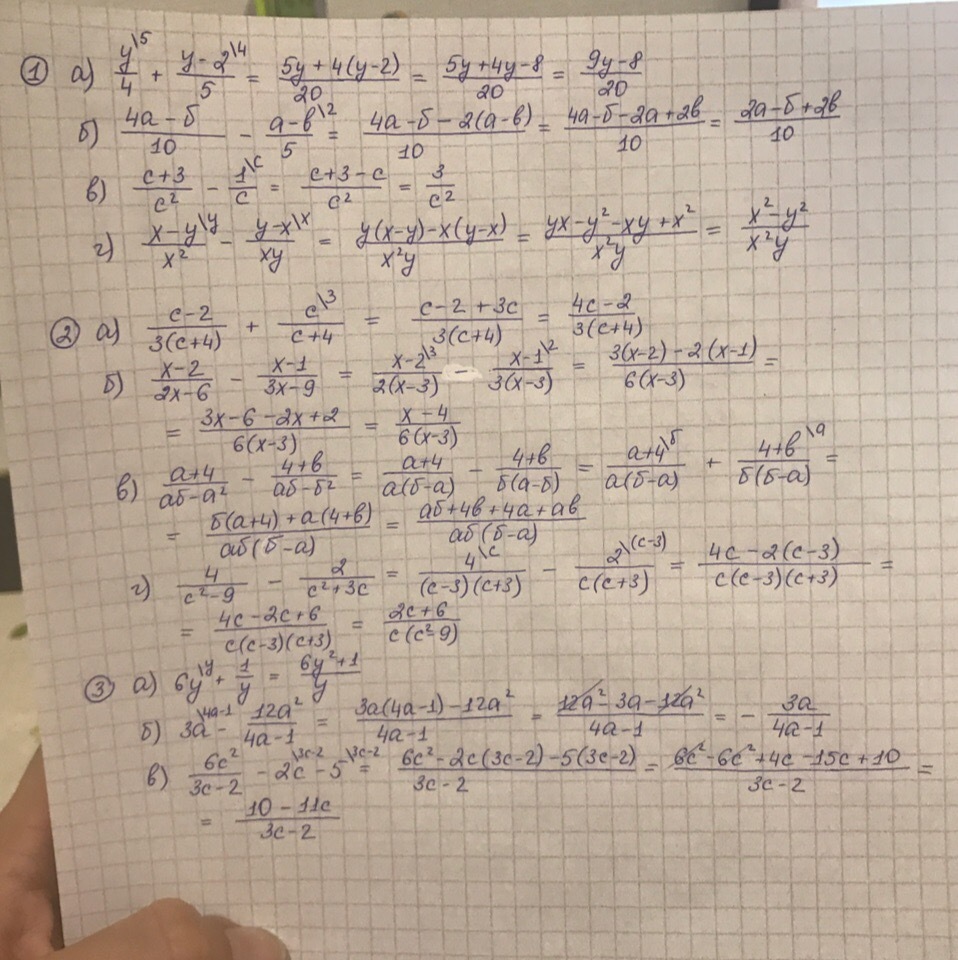 ① а) y\5/4 + y-2\4/5 = 5y+4(y-2)/20 = 5y+4y-8/20 = 9y-8/20
б) 4а-б/10 - а-в\2/5 = 4а-б-2(а-в)/10 = 4а-б-2а+2в/10 = 2а-б+2в/10
в) c+3/c² - 1\c/c = c+3-c/c² = 3/c²
г) x-y\y/x² - y-x\x/xy = y(x-y)-x(y-x)/x²y = yx-y²-xy+x²/x²y = x²-y²/x²y
② а) c-2/3(c+4) + c\3/c+4 = c-2+3c/3(c+4) = 4c-2/3(c+4)
б) x-2/2x-6 - x-1/3x-9 = x-2\3/2(x-3) - x-1\2/3(x-3) = 3(x-2)-2(x-1)/6(x-3) =
= 3x-6-2x+2/6(x-3) = x-4/6(x-3)
в) а+4/аб-а² - 4+в/аб-б² = а+4/а(б-а) - 4+в/б(а-б) = а+4\б/а(б-а) + 4+в\а/б(б-а) =
= б(а+4)+а(4+в)/аб(б-а) = аб+4в+4а+ав/аб(б-а)
г) 4/c²-9 - 2/c²+3c = 4\c/(c-3)(c+3) - 2\(c-3)/c(c+3) = 4c-2(c-3)/c(c-3)(c+3) =
= 4c-2c+6/c(c-3)(c+3) = 2c+6/c(c²-9)
③ а) 6y\y + 1/y = 6y²+1/y
б) 3a\4a-1 - 12a²/4a-1 = 3a(4a-1)-12a²/4a-1 = 12a²-3a-12a²/4a-1 = - 3a/4a-1
в) 6c²/3c-2 - 2c\3c-2 - 5\3c-2 = 6c²-2c(3c-2)-5(3c-2)/3c-2 = 6c²-6c²+4c-15c+10/3c-2 =
= 10-11c/3c-2